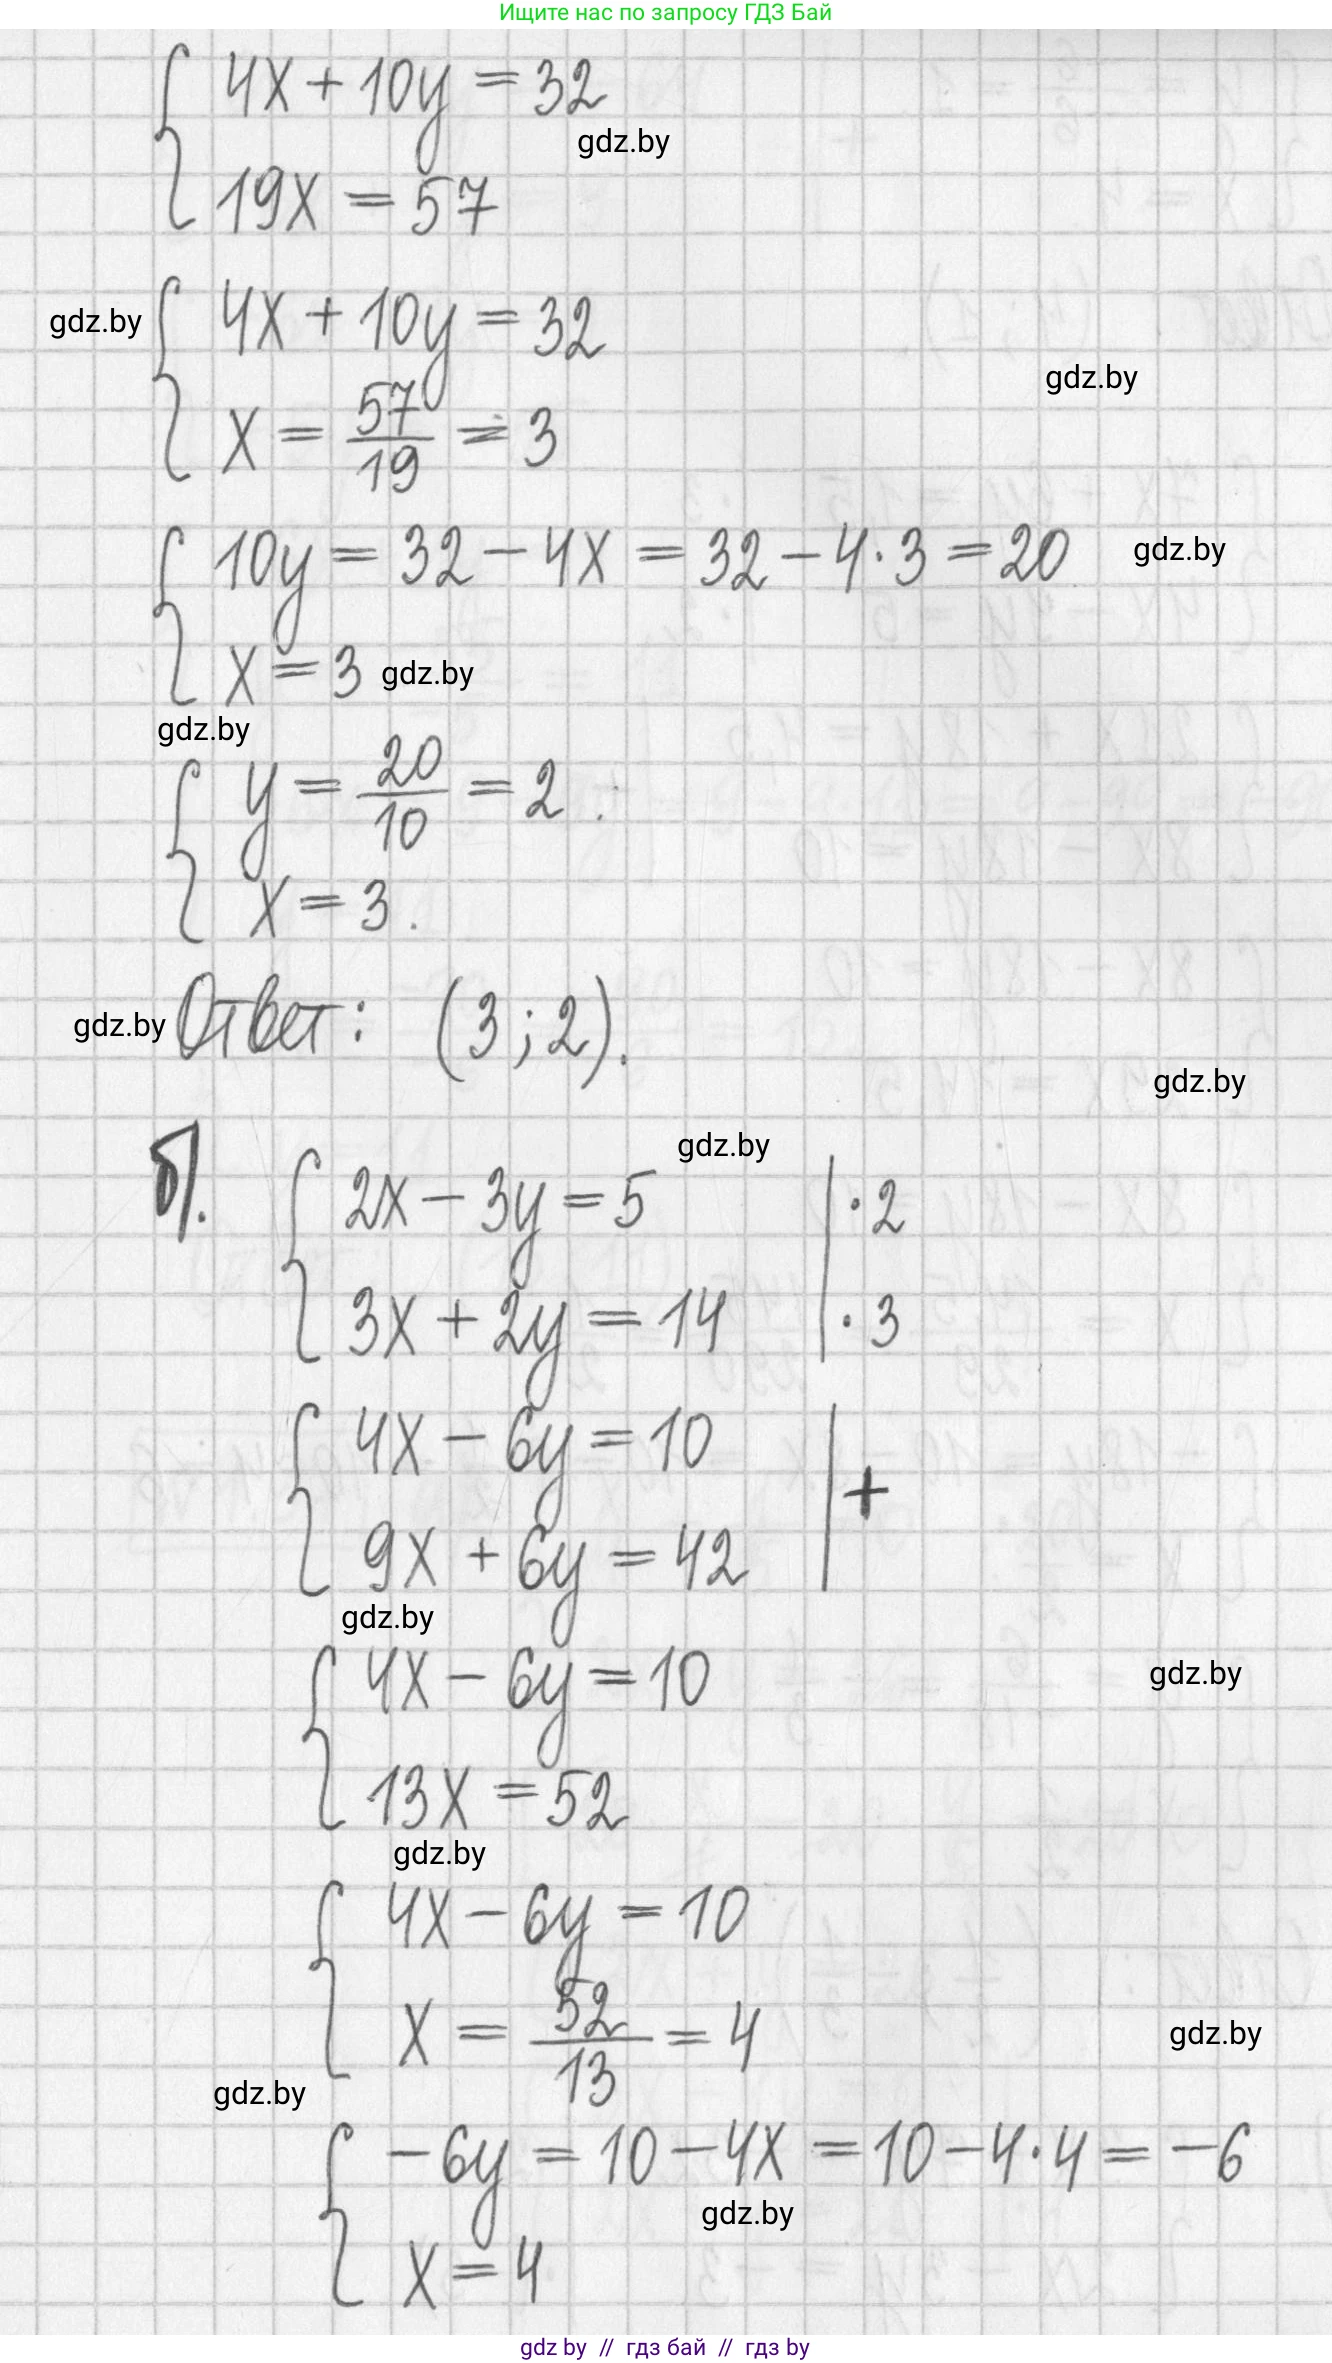 Ищите нас по запросу ГДЗ Бай
4x + 10y = 32
gdz.by
19x = 57
4x + 10y = 32
gdz.by
gdz.by
x = 57/19 = 3
10y = 32 - 4x = 32 - 4·3 = 20
gdz.by
x = 3
gdz.by
gdz.by
y = 20/10 = 2.
x = 3.
gdz.by
Ответ: (3; 2).
gdz.by
gdz.by
б). 2x - 3y = 5 | ·2
3x + 2y = 14 | ·3
4x - 6y = 10 | +
9x + 6y = 42
gdz.by
4x - 6y = 10
gdz.by
13x = 52
gdz.by
4x - 6y = 10
x = 52/13 = 4
gdz.by
gdz.by
-6y = 10 - 4x = 10 - 4·4 = -6
gdz.by
x = 4
gdz by // гдз бай // гдз by